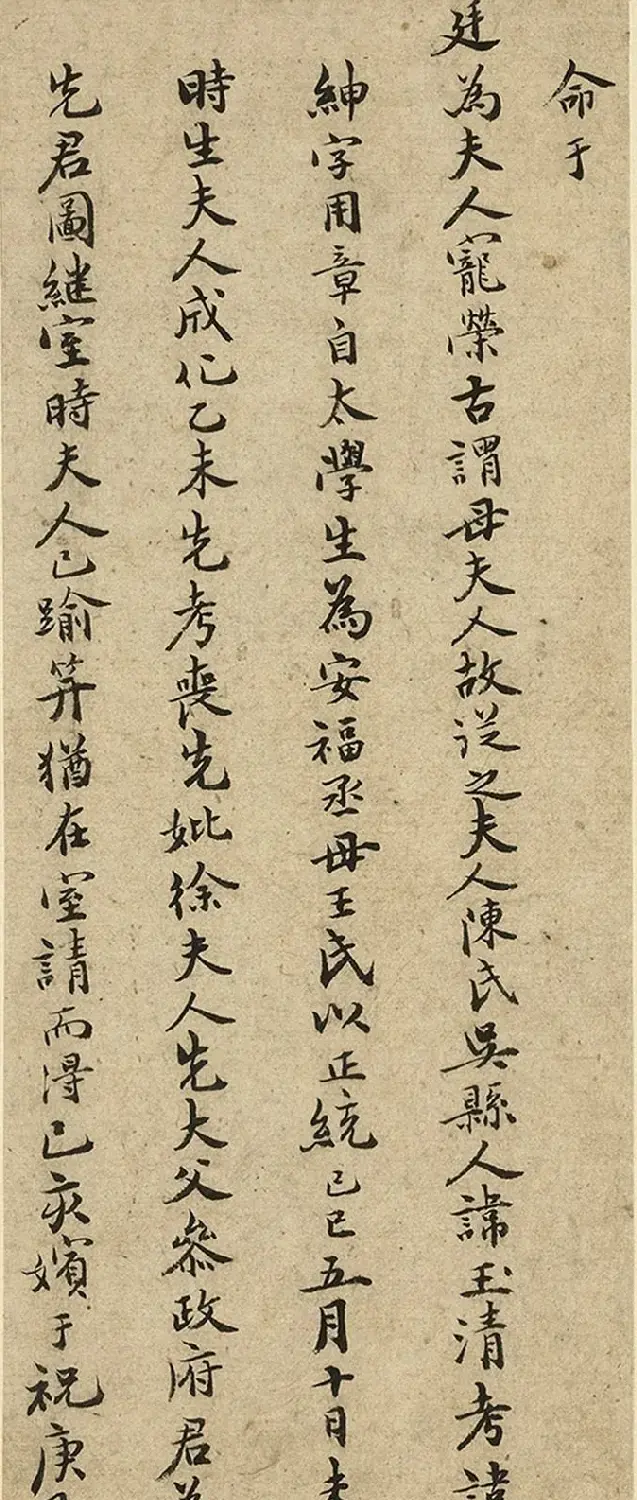 命于
廷為夫人寵榮古謂母夫人故從之夫人陳氏吳縣人諱玉清考諱
紳字用章自太學生為安福丞母王氏以正統己巳五月十日未
時生夫人成化乙未先考喪先妣徐夫人先大父叅政府君為
先君圖継室時夫人已踰笄猶在室請而得己亥嬪于祝庚